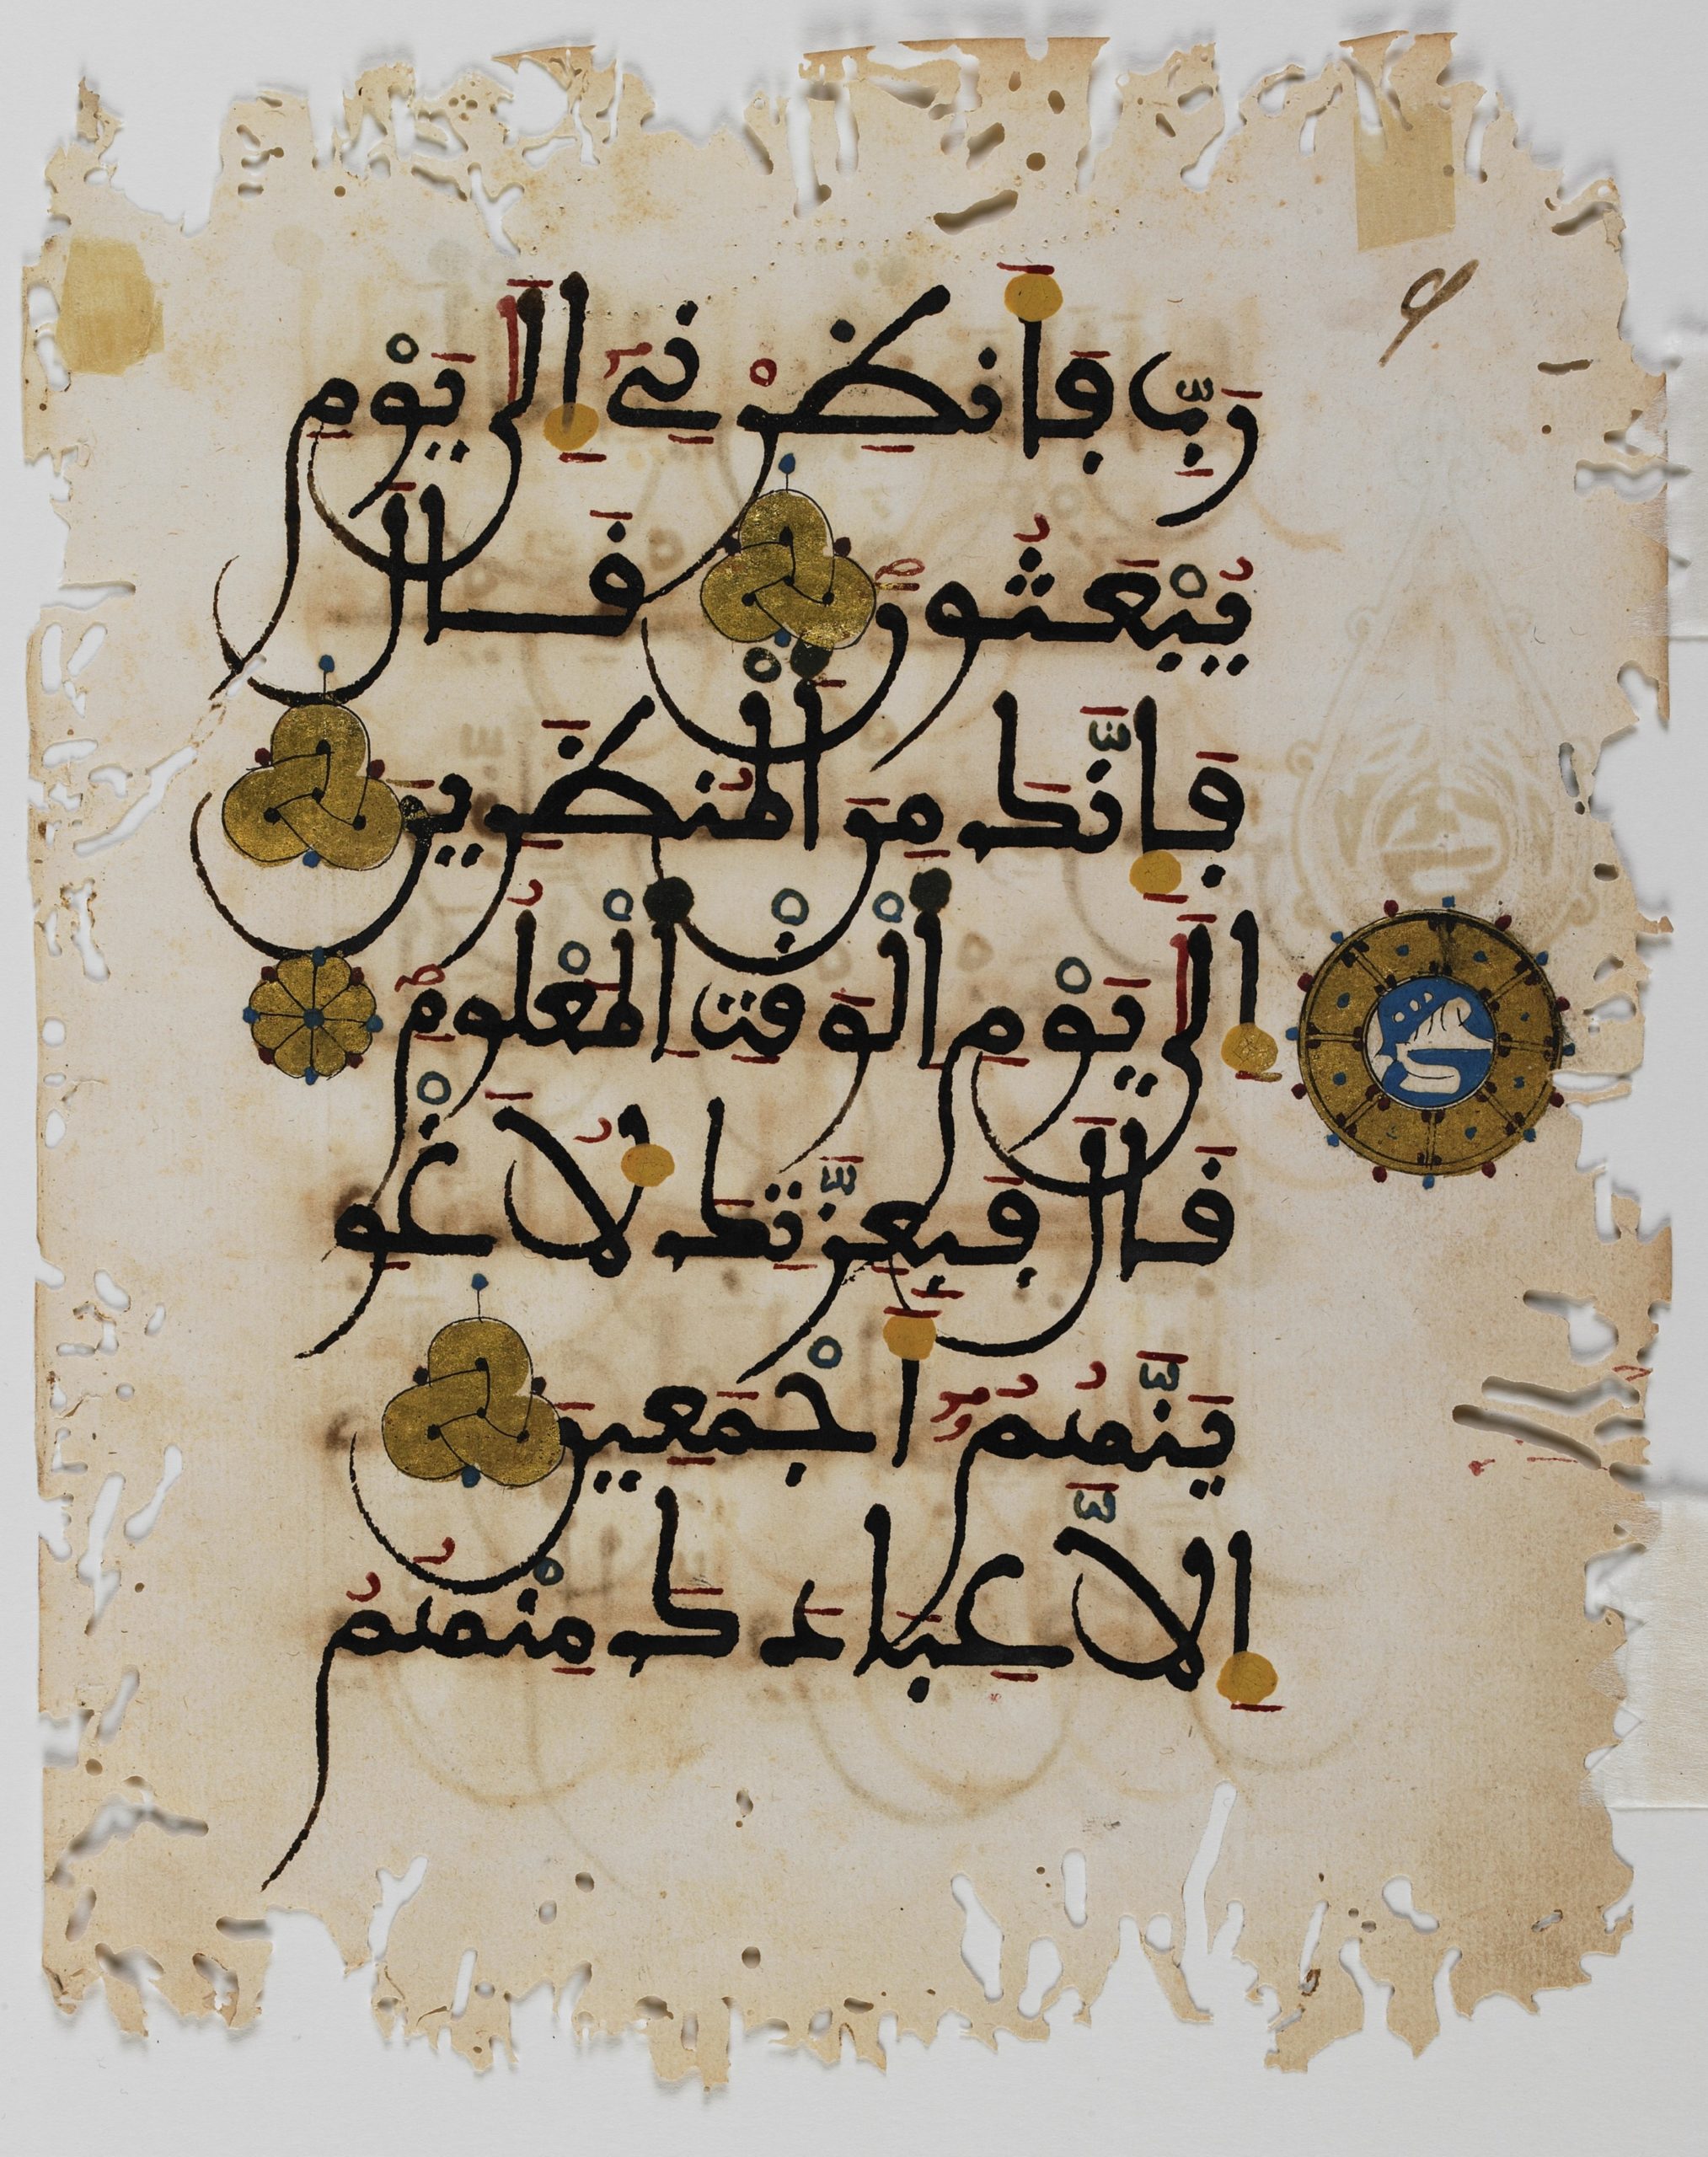 رَبِّ فَأَنظِرْنِےٓ إِلَىٰ يَوْمِ
يُبْعَثُونَ قَالَ
فَإِنَّكَ مِنَ اَ۬لْمُنظَرِينَ
إِلَىٰ يَوْمِ اِ۬لْوَقْتِ اِ۬لْمَعْلُومِ
قَالَ فَبِعِزَّتِكَ لَأُغْوِ
يَنَّهُمُۥٓ أَجْمَعِينَ
إِلَّا عِبَادَكَ مِنْهُمُ